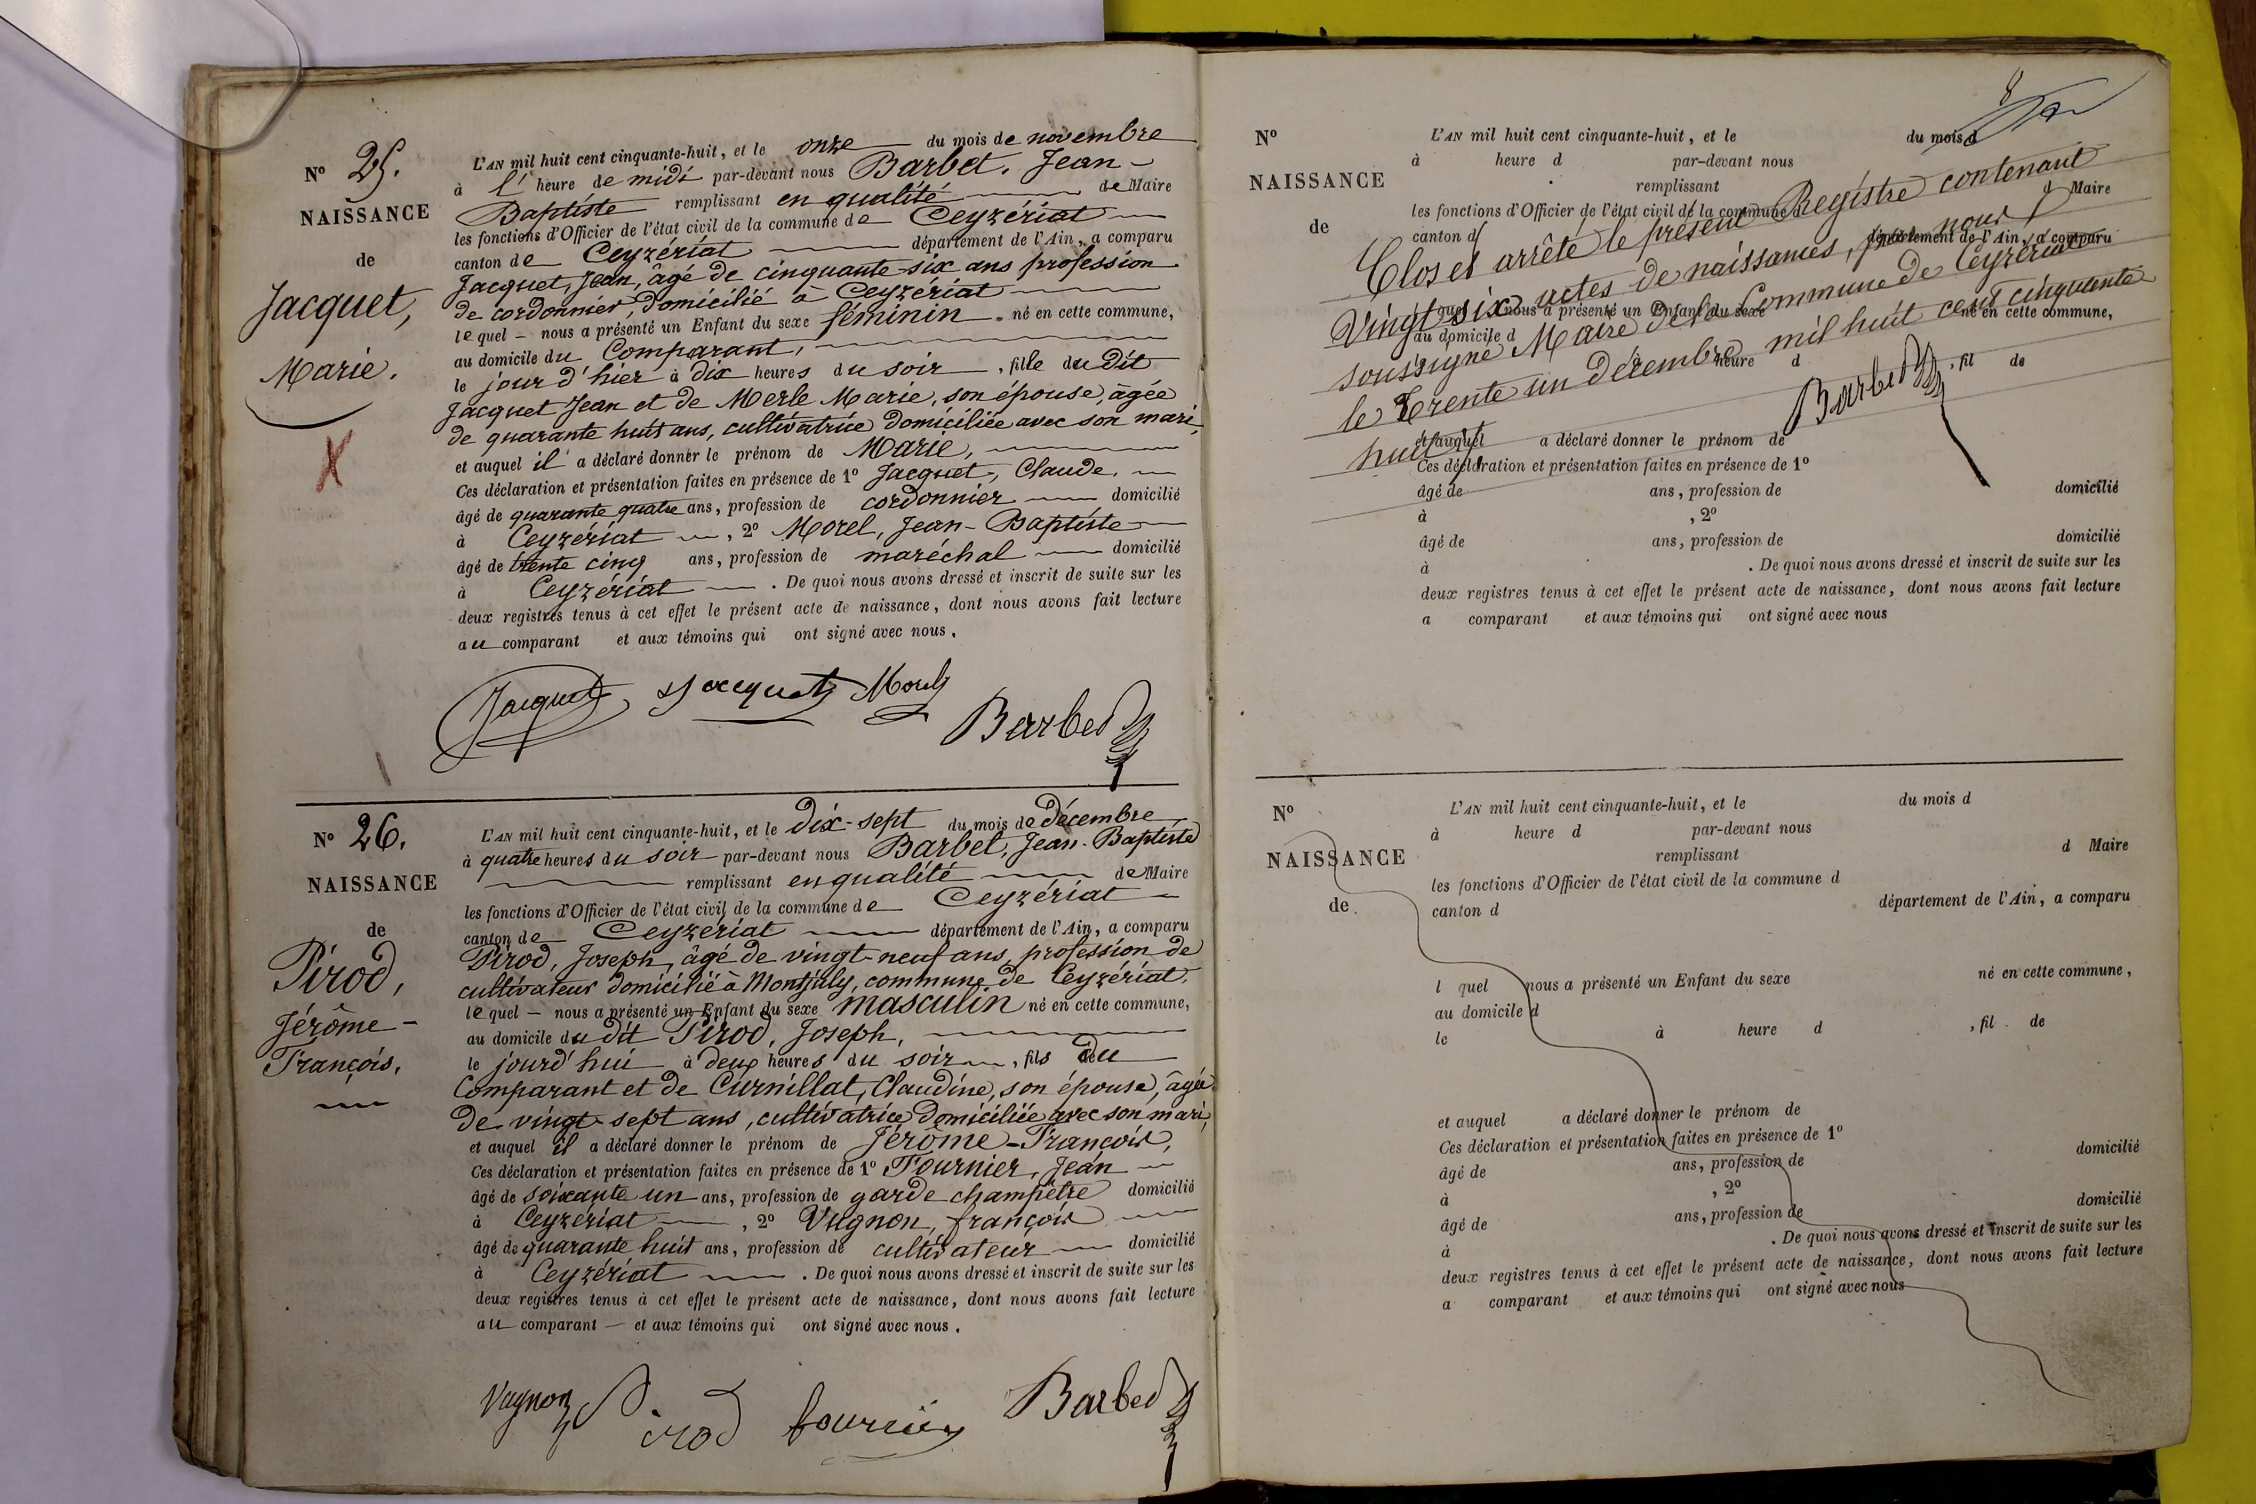 N° 25.
NAISSANCE
de
Jacquet,
Marie.
X
L'AN mil huit cent cinquante-huit, et le onze du mois de novembre
à l' heure de midi par-devant nous Barbet, Jean-
Baptiste remplissant en qualité de Maire
les fonctions d'Officier de l'état civil de la commune de Ceyzériat
canton de Ceyzériat département de l'Ain, a comparu
Jacquet, Jean, âgé de cinquante-six ans profession
de cordonnier, domicilié à Ceyzériat
lequel nous a présenté un Enfant du sexe féminin né en cette commune,
au domicile du Comparant,
le jour d'hier à dix heures du soir, fille du dit
Jacquet Jean et de Merle Marie, son épouse, âgée
de quarante huit ans, cultivatrice domiciliée avec son mari,
et auquel il a déclaré donner le prénom de Marie,
Ces déclaration et présentation faites en présence de 1° Jacquet, Claude,
âgé de quarante quatre ans, profession de cordonnier domicilié
à Ceyzériat, 2° Morel, Jean-Baptiste
âgé de trente cinq ans, profession de maréchal domicilié
à Ceyzériat. De quoi nous avons dressé et inscrit de suite sur les
deux registres tenus à cet effet le présent acte de naissance, dont nous avons fait lecture
au comparant et aux témoins qui ont signé avec nous.
Jacquet Jacquet Morel
Barbet
N° 26.
NAISSANCE
de
Pirod,
Jérôme-
François.
L'AN mil huit cent cinquante-huit, et le dix-sept du mois de décembre
à quatre heures du soir par-devant nous Barbet, Jean-Baptiste
remplissant en qualité de Maire
les fonctions d'Officier de l'état civil de la commune de Ceyzériat
canton de Ceyzériat département de l'Ain, a comparu
Pirod, Joseph, âgé de vingt-neuf ans, profession de
cultivateur domicilié à Montjuly, commune de Ceyzériat,
lequel nous a présenté un Enfant du sexe masculin né en cette commune,
au domicile du dit Pirod, Joseph,
le jourd'hui à deux heures du soir, fils du
Comparant et de Curnillat, Claudine, son épouse, âgée
de vingt-sept ans, cultivatrice domiciliée avec son mari,
et auquel il a déclaré donner le prénom de Jérôme-François,
Ces déclaration et présentation faites en présence de 1° Fournier, Jean
âgé de soixante un ans, profession de garde champêtre domicilié
à Ceyzériat, 2° Vugnon, françois
âgé de quarante huit ans, profession de cultivateur domicilié
à Ceyzériat. De quoi nous avons dressé et inscrit de suite sur les
deux registres tenus à cet effet le présent acte de naissance, dont nous avons fait lecture
au comparant et aux témoins qui ont signé avec nous.
Vugnon Pirod fournier Barbet
8
N°
NAISSANCE
de
L'AN mil huit cent cinquante-huit, et le du mois d
à heure d par-devant nous
remplissant Maire
les fonctions d'Officier de l'état civil de la commune d
canton d département de l'Ain, a comparu
quel nous a présenté un Enfant du sexe né en cette commune,
au domicile d
heure d , fil de
et auquel a déclaré donner le prénom de
Ces déclaration et présentation faites en présence de 1°
âgé de ans, profession de domicilié
à , 2°
âgé de ans, profession de domicilié
à . De quoi nous avons dressé et inscrit de suite sur les
deux registres tenus à cet effet le présent acte de naissance, dont nous avons fait lecture
a comparant et aux témoins qui ont signé avec nous
Clos et arrêté le présent Registre contenant
Vingt six actes de naissances, par nous
soussigné Maire de la Commune de Ceyzériat
le trente un décembre mil huit cent cinquante
huit
Barbet
N°
NAISSANCE
de
L'AN mil huit cent cinquante-huit, et le du mois d
à heure d par-devant nous
remplissant d Maire
les fonctions d'Officier de l'état civil de la commune d
canton d département de l'Ain, a comparu
l quel nous a présenté un Enfant du sexe né en cette commune,
au domicile d
le à heure d , fil de
et auquel a déclaré donner le prénom de
Ces déclaration et présentation faites en présence de 1°
âgé de ans, profession de domicilié
à , 2°
âgé de ans, profession de domicilié
à . De quoi nous avons dressé et inscrit de suite sur les
deux registres tenus à cet effet le présent acte de naissance, dont nous avons fait lecture
a comparant et aux témoins qui ont signé avec nous